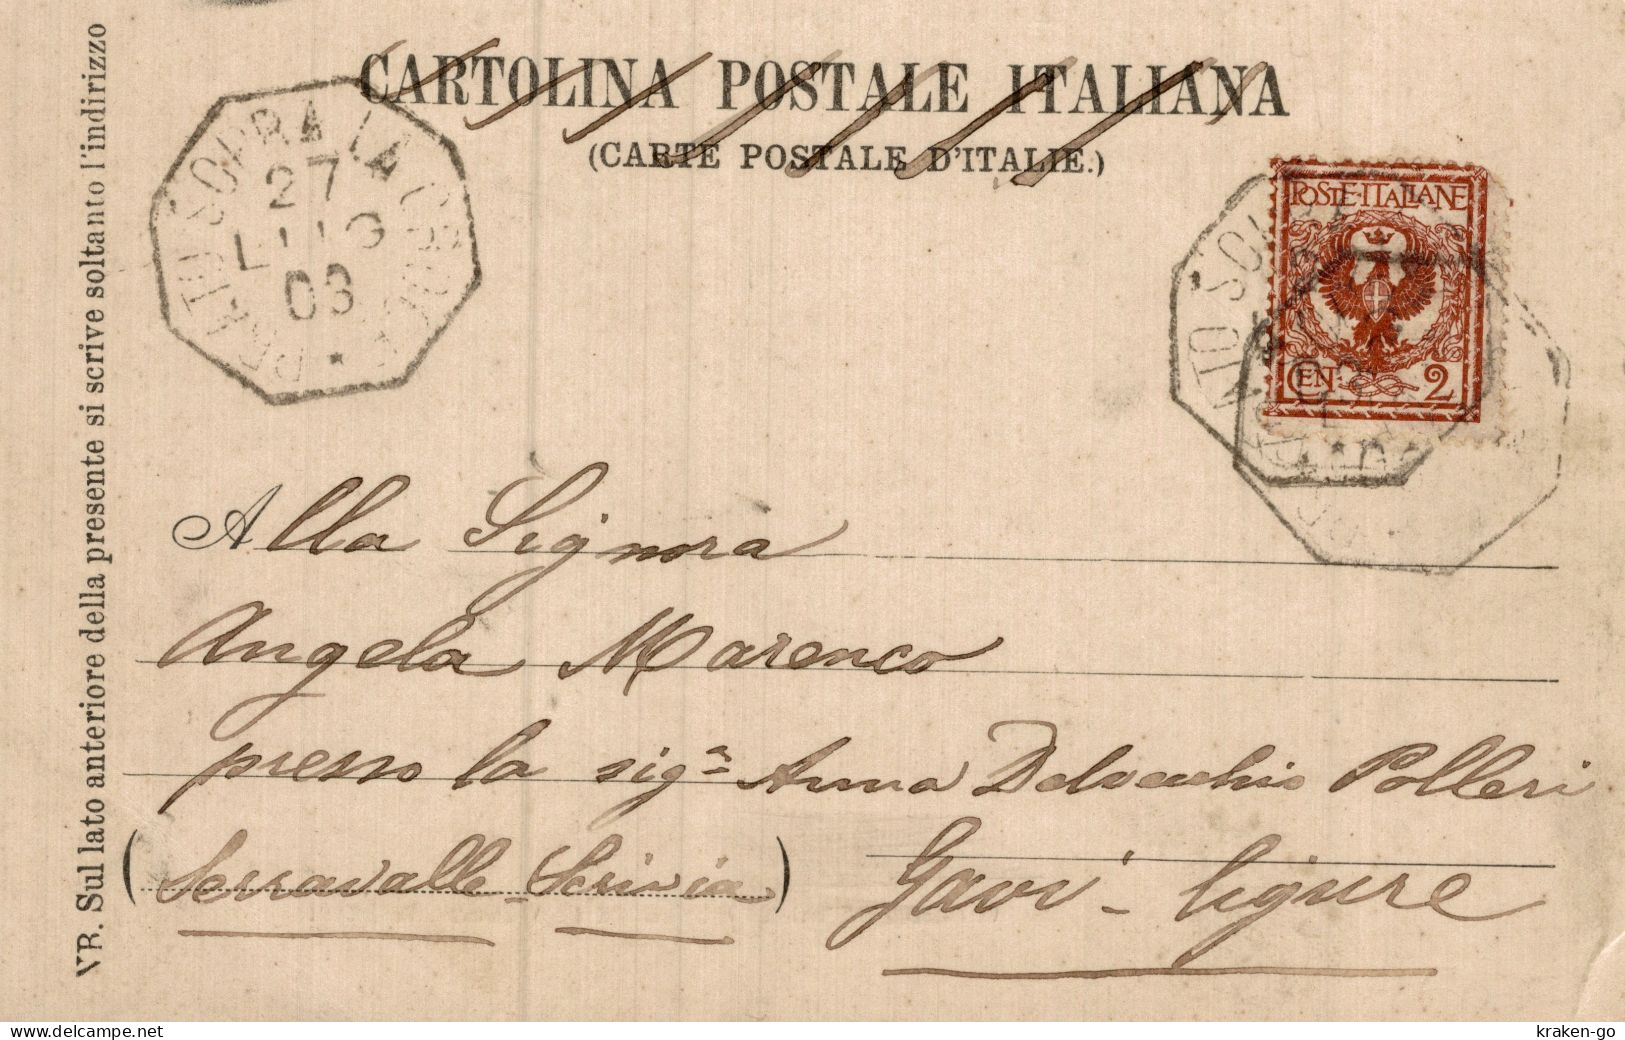 CARTOLINA POSTALE ITALIANA
(CARTE POSTALE D'ITALIE.)
VR. Sul lato anteriore della presente si scrive soltanto l'indirizzo
SOPRA LA
27
LUG
03
POSTE·ITALIANE
CENT 2
Alla Signora
Angela Marenco
presso la sigª Anna Delvecchio Polleri
(Serravalle-Scrivia) Gavi - ligure
www.delcampe.net
kraken-go